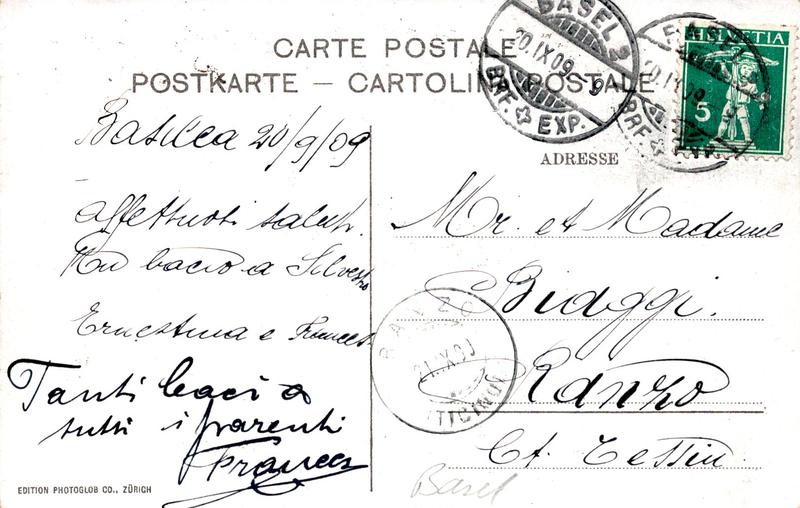 CARTE POSTALE
POSTKARTE – CARTOLINA POSTALE
BASEL 2
20.IX.09.-9
BRF. EXP.
BASEL
20.IX.09
BRF.
HELVETIA
5
ADRESSE
Basilea 20/9/09
Affettuosi saluti.
Un bacio a Silvestro
Ernestina e Francesco
Tanti baci a
tutti i parenti
Mr. et Madame
Bioggi.
Ranzo
Ct. Tessin
RANZO
21.IX.09
(TICINO)
Basel
EDITION PHOTOGLOB CO., ZÜRICH